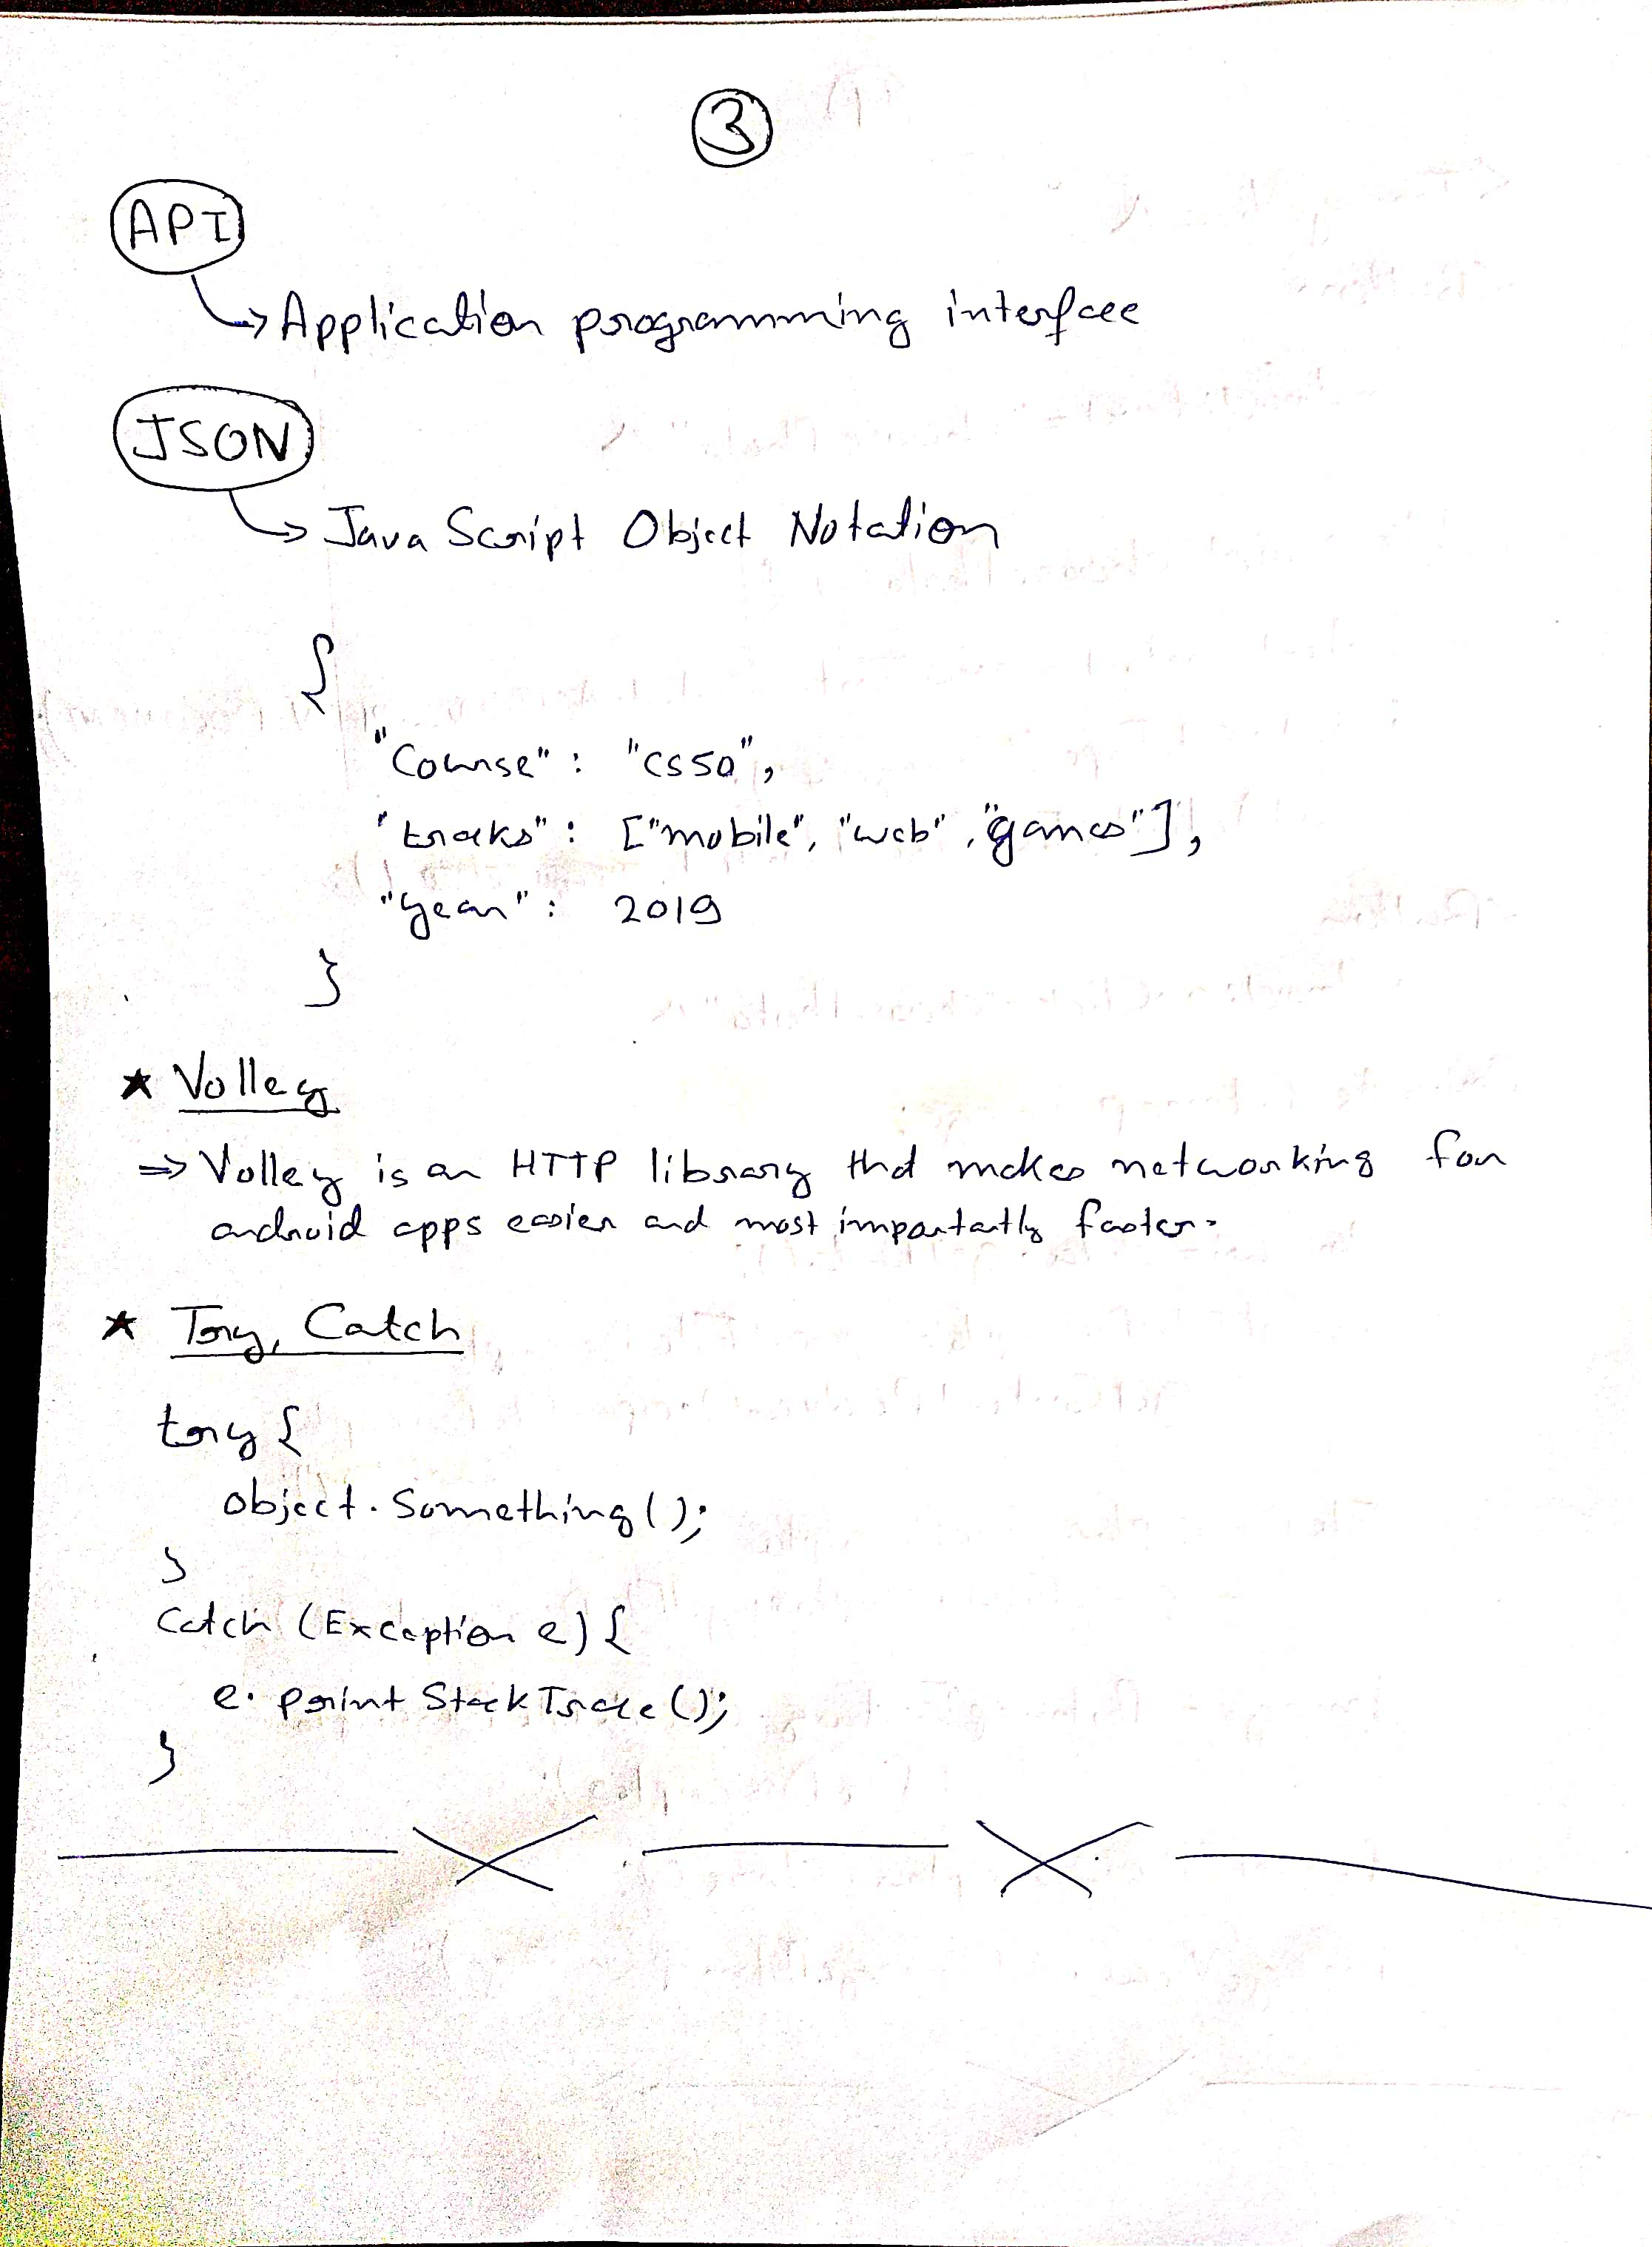 3
API
→ Application programming interface
JSON
→ Java Script Object Notation
{
"Course" : "CS50",
"tracks" : ["mobile", "web", "games"],
"year" : 2019
}
★ Volley
⇒ Volley is an HTTP library that makes networking for
android apps easier and most importantly faster.
★ Try, Catch
try {
object.Something();
}
Catch (Exception e) {
e. print Stack Trace();
}